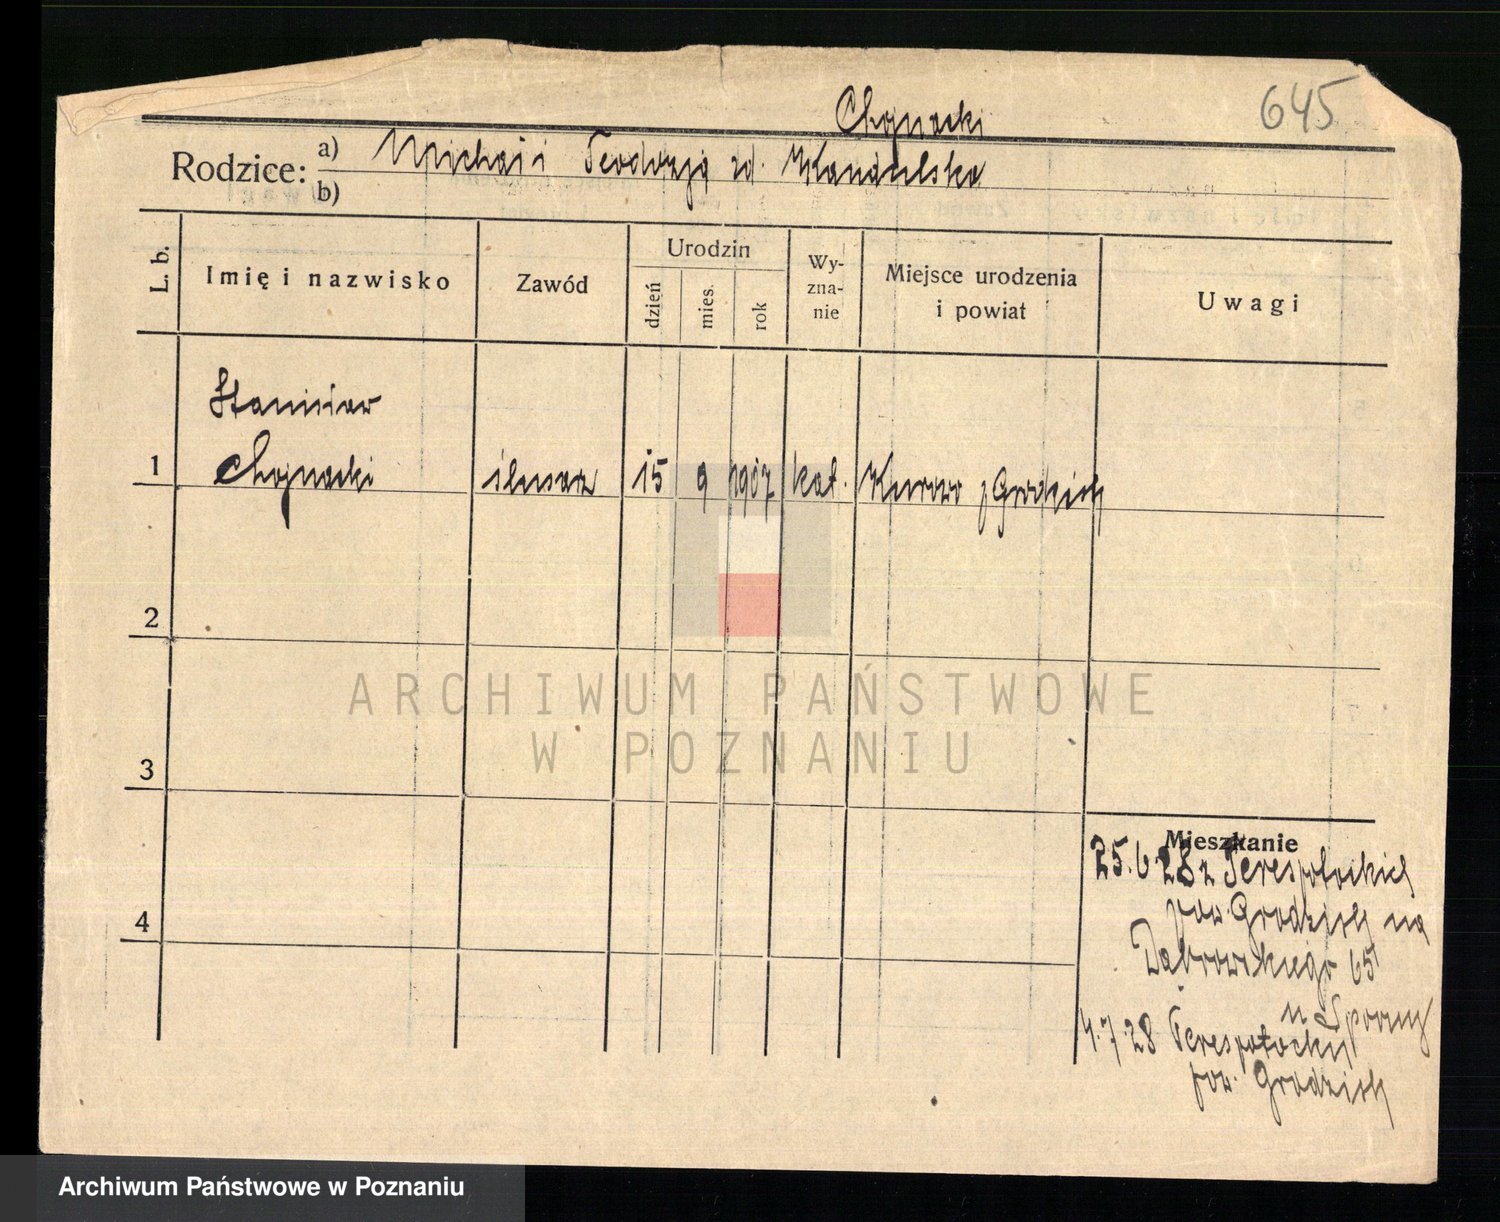 645
Chojnacki
Rodzice: a) Michał i Teodozja zd. Kandulska
b)
L. b. Imię i nazwisko Zawód Urodzin dzień mies. rok Wy-zna-nie Miejsce urodzenia i powiat Uwagi
Stanisław
1 Chojnacki ślusarz 15 9 1907 kat. Kurowo p Grodzisk
2
ARCHIWUM PAŃSTWOWE
W POZNANIU
3
Mieszkanie
25.6.28 z Terespotockich
4 pow. Grodzisk na
Dąbrowskiego 65
u Sporny
4.7.28 Terespotockie
pow. Grodzisk
Archiwum Państwowe w Poznaniu